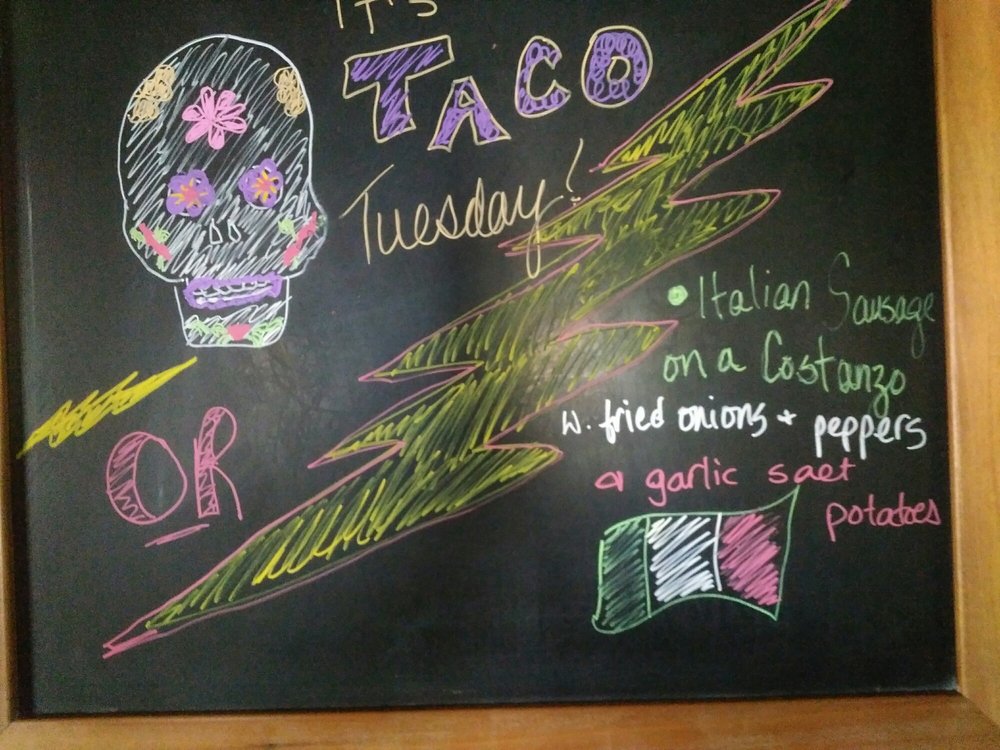 It's
TACO
Tuesday!
OR
• Italian Sausage
on a Costanzo
w. fried onions + peppers
a garlic salt
potatoes